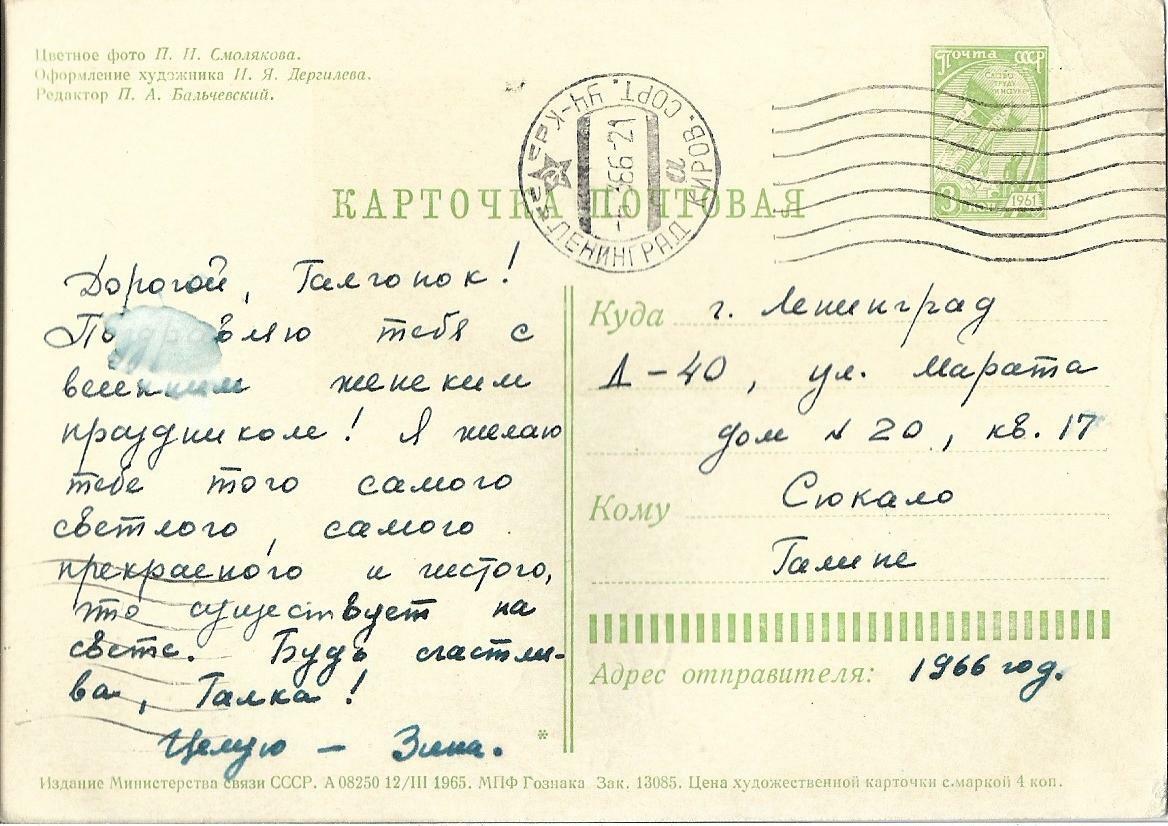 Цветное фото П. И. Смолякова.
Оформление художника И. Я. Дергилева.
Редактор П. А. Бальчевский.
Почта СССР
СЛАВА
ТРУДУ
И НАУКЕ
3 коп
1961
ЛЕНИНГРАД
КИРОВ. СОРТ. УЧ-К
КАРТОЧКА ПОЧТОВАЯ
Дорогой, Галчонок!
Поздравляю тебя с
женским
праздником! Я желаю
тебе того самого
светлого, самого
прекрасного и чистого,
что существует на
свете. Будь счастли-
ва, Галка!
Целую – Зина.
Куда г. Ленинград
Д-40, ул. Марата
дом № 20, кв. 17
Кому Сюкало
Галине
Адрес отправителя: 1966 год.
Издание Министерства связи СССР. А 08250 12/III 1965. МПФ Гознака Зак. 13085. Цена художественной карточки с маркой 4 коп.